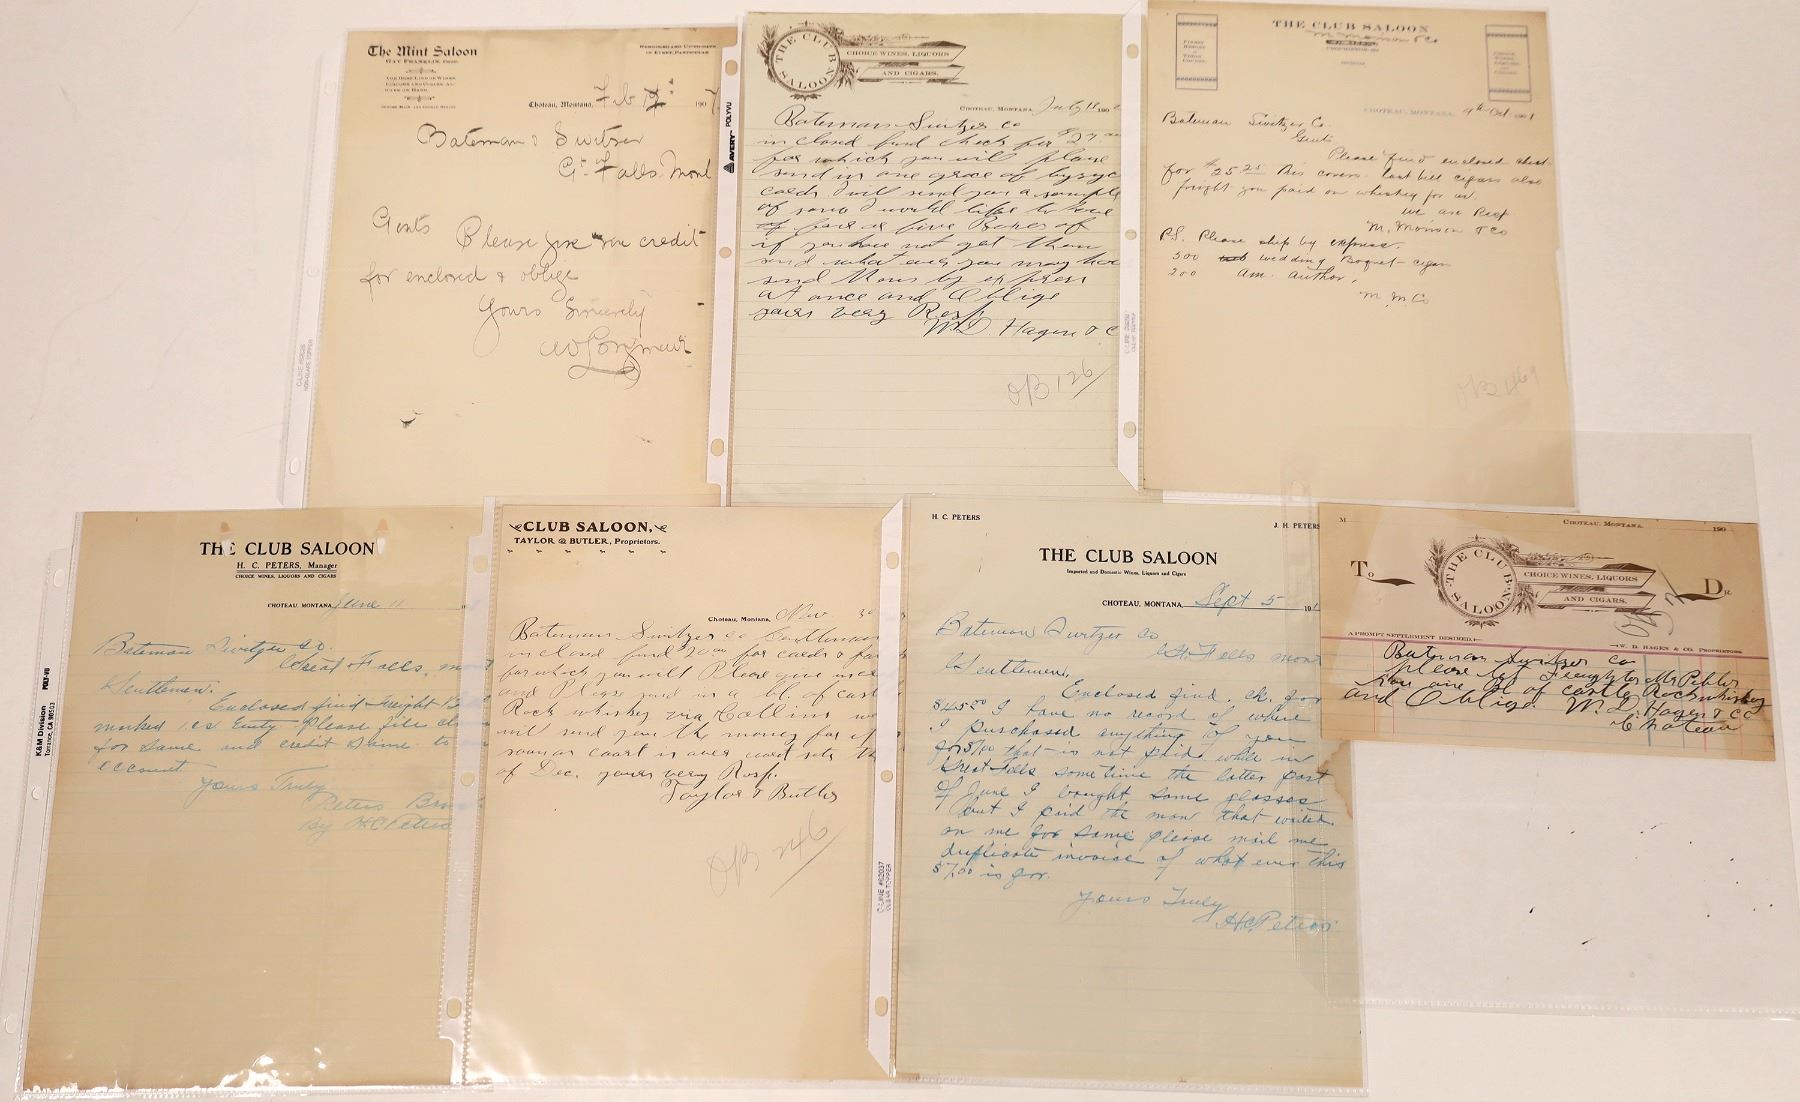 The Mint Saloon
GAY FRANKLIN, PROP.
Choteau, Montana, Feb 190
Bateman & Switzer
Gt Falls Mont
Gents Please give me credit
for enclosed & oblige
Yours Sincerely
THE CLUB SALOON
CHOICE WINES, LIQUORS
AND CIGARS.
CHOTEAU, MONTANA, July 18 190
Bateman Switzer co
in closed find check for $27.00
for which you will please
send us one groce of bysycle
cards I will send you a sample
of some I would like to have
of four or five Boxes of
if you have not got them
send what ever you may have
send them by express
at once and Oblige
yours very Resp.
W.D. Hagen & C
OB 126
THE CLUB SALOON
M. Morrison & Co
CHOTEAU, MONTANA, 9th Oct 1901
Bateman Switzer Co.
Gents
Please find enclosed check
for $25.25 this covers last bill cigars also
freight you paid on whiskey for us.
We are Resp
M. Morrison & Co
P.S. Please ship by express.
500 wedding Boquet cigars
200 Am. Author.
M. M Co
OB 1469
THE CLUB SALOON
H. C. PETERS, Manager
CHOICE WINES, LIQUORS AND CIGARS
CHOTEAU, MONTANA, June 11
Bateman Switzer Co.
Great Falls, m
Gentlemen.
Enclosed find Freight B
marked Please file cl
for same and credit same to
account
Yours Truly
Peters Bro
By H.C. Peters
CLUB SALOON,
TAYLOR & BUTLER, Proprietors.
Choteau, Montana, Nov 30
Bateman Switzer co Gentlemen
in closed find for cards & fa
for which you will Please give us c
and Please send us a bl. of cast
Rock whiskey via Collins we
will send you the money for it
soon as court is over court sets th
of Dec. yours very Resp.
Taylor & Butler
OB 246
H. C. PETERS
J. H. PETERS
THE CLUB SALOON
Imported and Domestic Wines, Liquors and Cigars
CHOTEAU, MONTANA, Sept 5 191
Bateman Switzer Co
Gt. Falls mont
Gentlemen,
Enclosed find ck. for
$45.00 I have no record of where
I purchased anything of you
for $7.00 that is not paid while in
Great Falls some time the latter part
of June I bought some glasses
but I paid the man that waited
on me for same please mail me
duplicate invoice of what ever this
$7.00 is for.
Yours Truly
H.C. Peters
M
CHOTEAU, MONTANA, 190
To
THE CLUB SALOON
CHOICE WINES, LIQUORS
AND CIGARS.
DR.
A PROMPT SETTLEMENT DESIRED.
W. D. HAGEN & CO. PROPRIETORS
Bateman Switzer co
please let Mr
one Bl of castle Rock whiskey
and Oblige W.D. Hagen & Co
Choteau
AVERY POLYVU
K&M Division POLY-VU
Torrance, CA 90503
C-LINE #62037